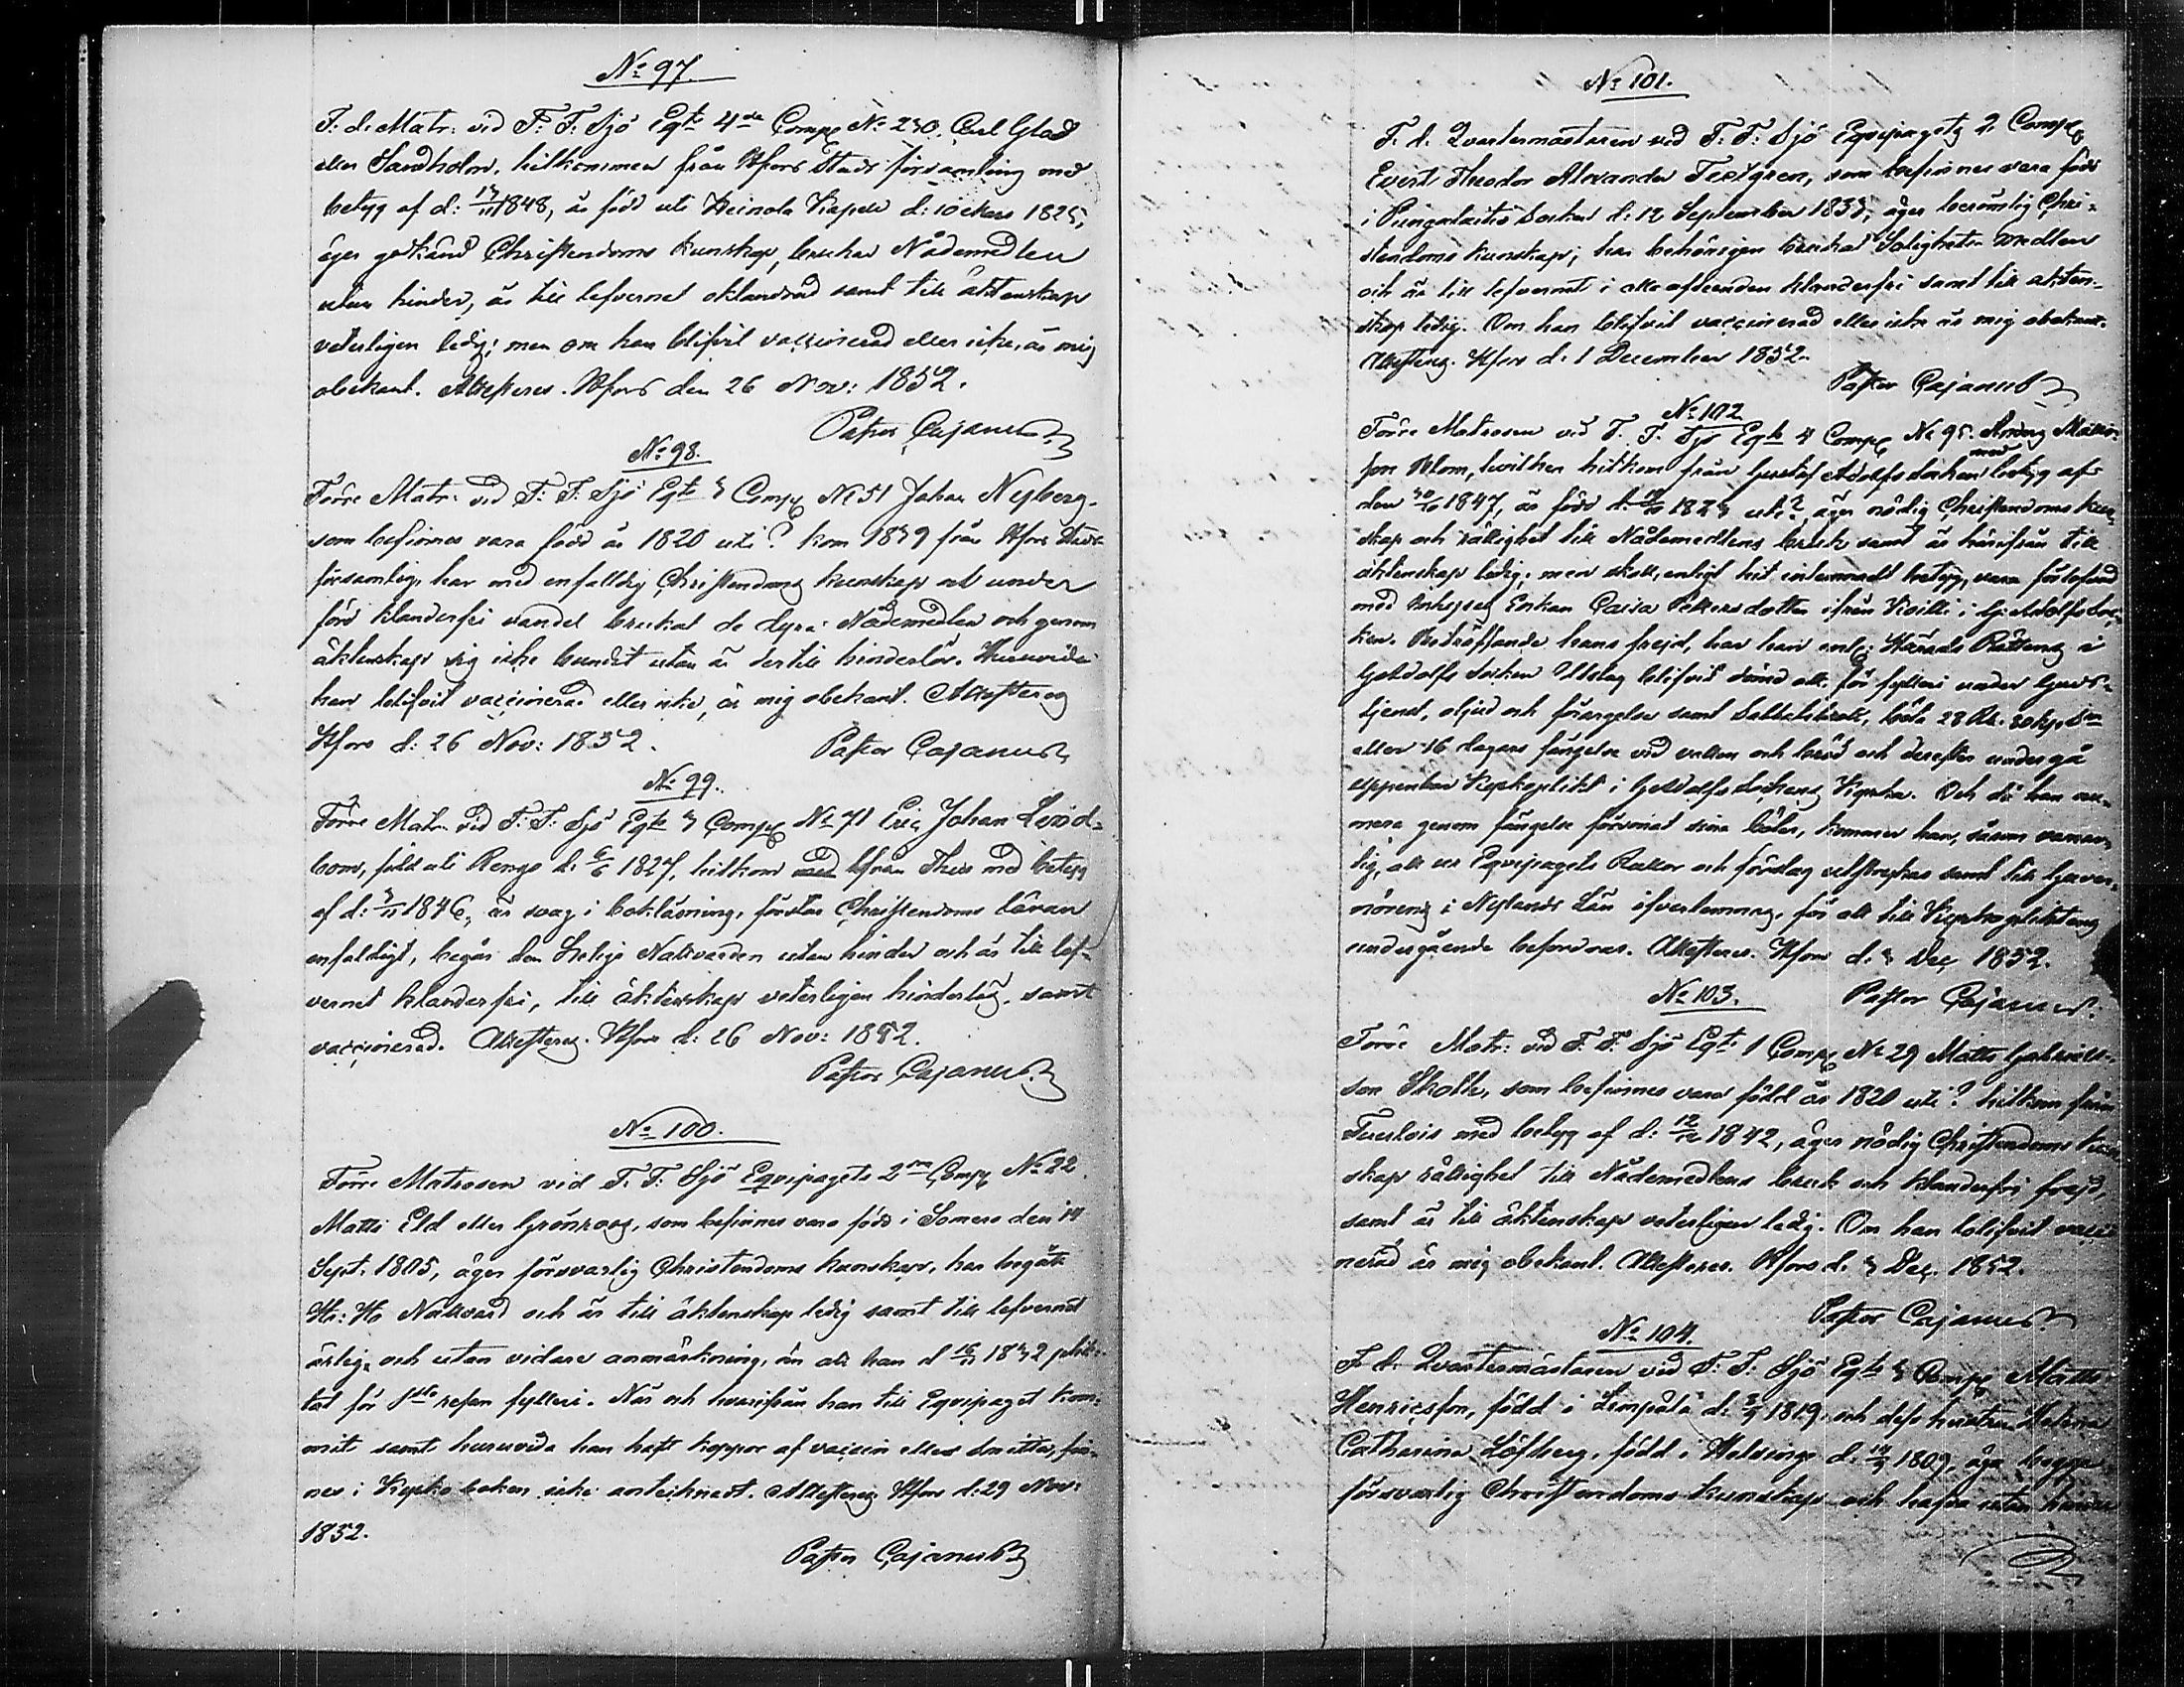 No 97.
F. d. Matr: vid F: F: Sjö Eqts 4de Comp No 230. Carl Glad
eller Sandholm, hitkommen från Hfors Stads församling med
betyg af d: 1848, är född uti Heinola Kapell d: 10 Mars 1825,
äger godkänd Christendoms kunskap, brukar Nådemedlen
utan hinder, är till lefvernet oklandrad samt till äktenskap
veterligen ledig; men om han blifvit vaccinerad eller icke, är mig
obekant. Attesteras. Hfors den 26 Nov: 1852.
Pastor Cajanus
No 98.
Förre Matr: vid F: F: Sjö Eqts 3 Comp No 51 Johan Nyberg
som befinnes vara född år 1820 uti? kom 1839 från Hfors Stads
församling, har med enfaldig Christendoms kunskap och under
förd klanderfri vandel brukat de dyra Nådemedlen och genom
äktenskap sig icke bundit utan är dertill hinderlös. Huruvida
han blifvit vaccinerad eller icke, är mig obekant. Attesteras
Hfors d: 26 Nov: 1852.
Pastor Cajanus
No 99.
Förre Matr. vid F: F: Sjö Eqts 3 Comp No 71 Eric Johan
bom, född uti Rengo d: 6/6 1827, hitkom från Thus med betyg
af d: 1846, är svag i bokläsning, förstår Christendoms läran
enfaldigt, begår den Helige Nattvarden utan hinder och är till lef-
vernet klanderfri, till äktenskap veterligen hinderlös, samt
vaccinerad. Attesteras. Hfors d: 26 Nov: 1852.
Pastor Cajanus
No 100.
Förre Matrosen vid F. F: Sjö Eqvipagets 2dra Comp No 22
Matts Eld eller Grönroos, som befinnes vara född i Somero den 14
Sept. 1805, äger försvarlig Christendoms kunskap, har begått
H: H: Nattvard och är till äktenskap ledig samt till lefvernet
ärlig, och utan vidare anmärkning, än att han d 1832 plik-
tat för 1sta resan fylleri. När och hvarifrån han till Eqvipaget kom-
mit samt huruvida han haft koppor af vaccin eller smitta, fin-
nes i Kyrko boken icke antecknadt. Attesteras Hfors d: 29 Nov:
1852.
Pastor Cajanus
No 101.
F. d. Qvartermästaren vid F: F: Sjö Eqvipagets 2. Comp
Evert Theodor Alexander Textgren, som befinnes vara född
i Pungalaitio Socken d: 12 September 1833, äger berömlig Chri-
stendoms kunskap; har behörigen brukat Salighets medlen
och är till lefvernet i alla afseenden klanderfri samt till äkten-
skap ledig. Om han blifvit vaccinerad eller icke är mig obekant.
Attesteras. Hfors d: 1 December 1852.
Pastor Cajanus
No 102
Förre Matrosen vid F. F. Sjö Eqts 4 Comp No 95. Matts-
son Blom, hvilken hitkom från Gustaf Adolfs Socken med betyg af
den 1847, är född d. 1823 uti?, äger nödig Christendoms kun-
skap och rättighet till Nådemedlens bruk samt är härifrån till
äktenskap ledig; men skall, enligt hit inkommadt betyg, vara förlofvad
med Enkan Caisa Pettersdotter ifrån i G. Adolfs Soc-
ken. Beträffande hans frejd, har han enl: Härads Rättens i
G. Adolfs Socken Utslag blifvit dömd att för fylleri under Guds-
tjenst, oljud och förargelse samt Sabbatsbrott, böta 28 Rb. 80 kop Sr
eller 16 dagars fängelse vid vatten och bröd och derefter undergå
uppenbar Kyrkoplikt i G. Adolfs Sockens Kyrka. Och då han nu-
mera genom fängelse försonat sina böter, kommer han, såsom vanar-
tig, att ur Eqvipagets Rullor och förslag utstrykas samt till Guver-
nörens i Nylands Län öfverlemnas, för att till Kyrkopliktens
undergående befordras. Attesteras. Hfors d. 3 Dec 1852.
Pastor Cajanus.
No 103.
Förre Matr: vid F. F: Sjö Eqts 1 Comp No 29 Matts Gabriels-
son Skolt, som befinnes vara född år 1820 uti? hitkom från
Tuulois med betyg af d: 1842, äger nödig Christendoms kun-
skap rättighet till Nådemedlens bruk och klanderfri frejd,
samt är till äktenskap veterligen ledig. Om han blifvit vacci-
nerad är mig obekant. Attesteras. Hfors d. 3 Dec. 1852.
Pastor Cajanus
No 104.
F. d. Qvartermästaren vid F: F: Sjö Eqts 3 Comp Matts
Henricsson, född i Lempälä d: 1819, och dess hustru Helena
Catharina Löfberg, född i Helsinge d: 1809, äga begge
försvarlig Christendoms kunskap och hafva utan hinder